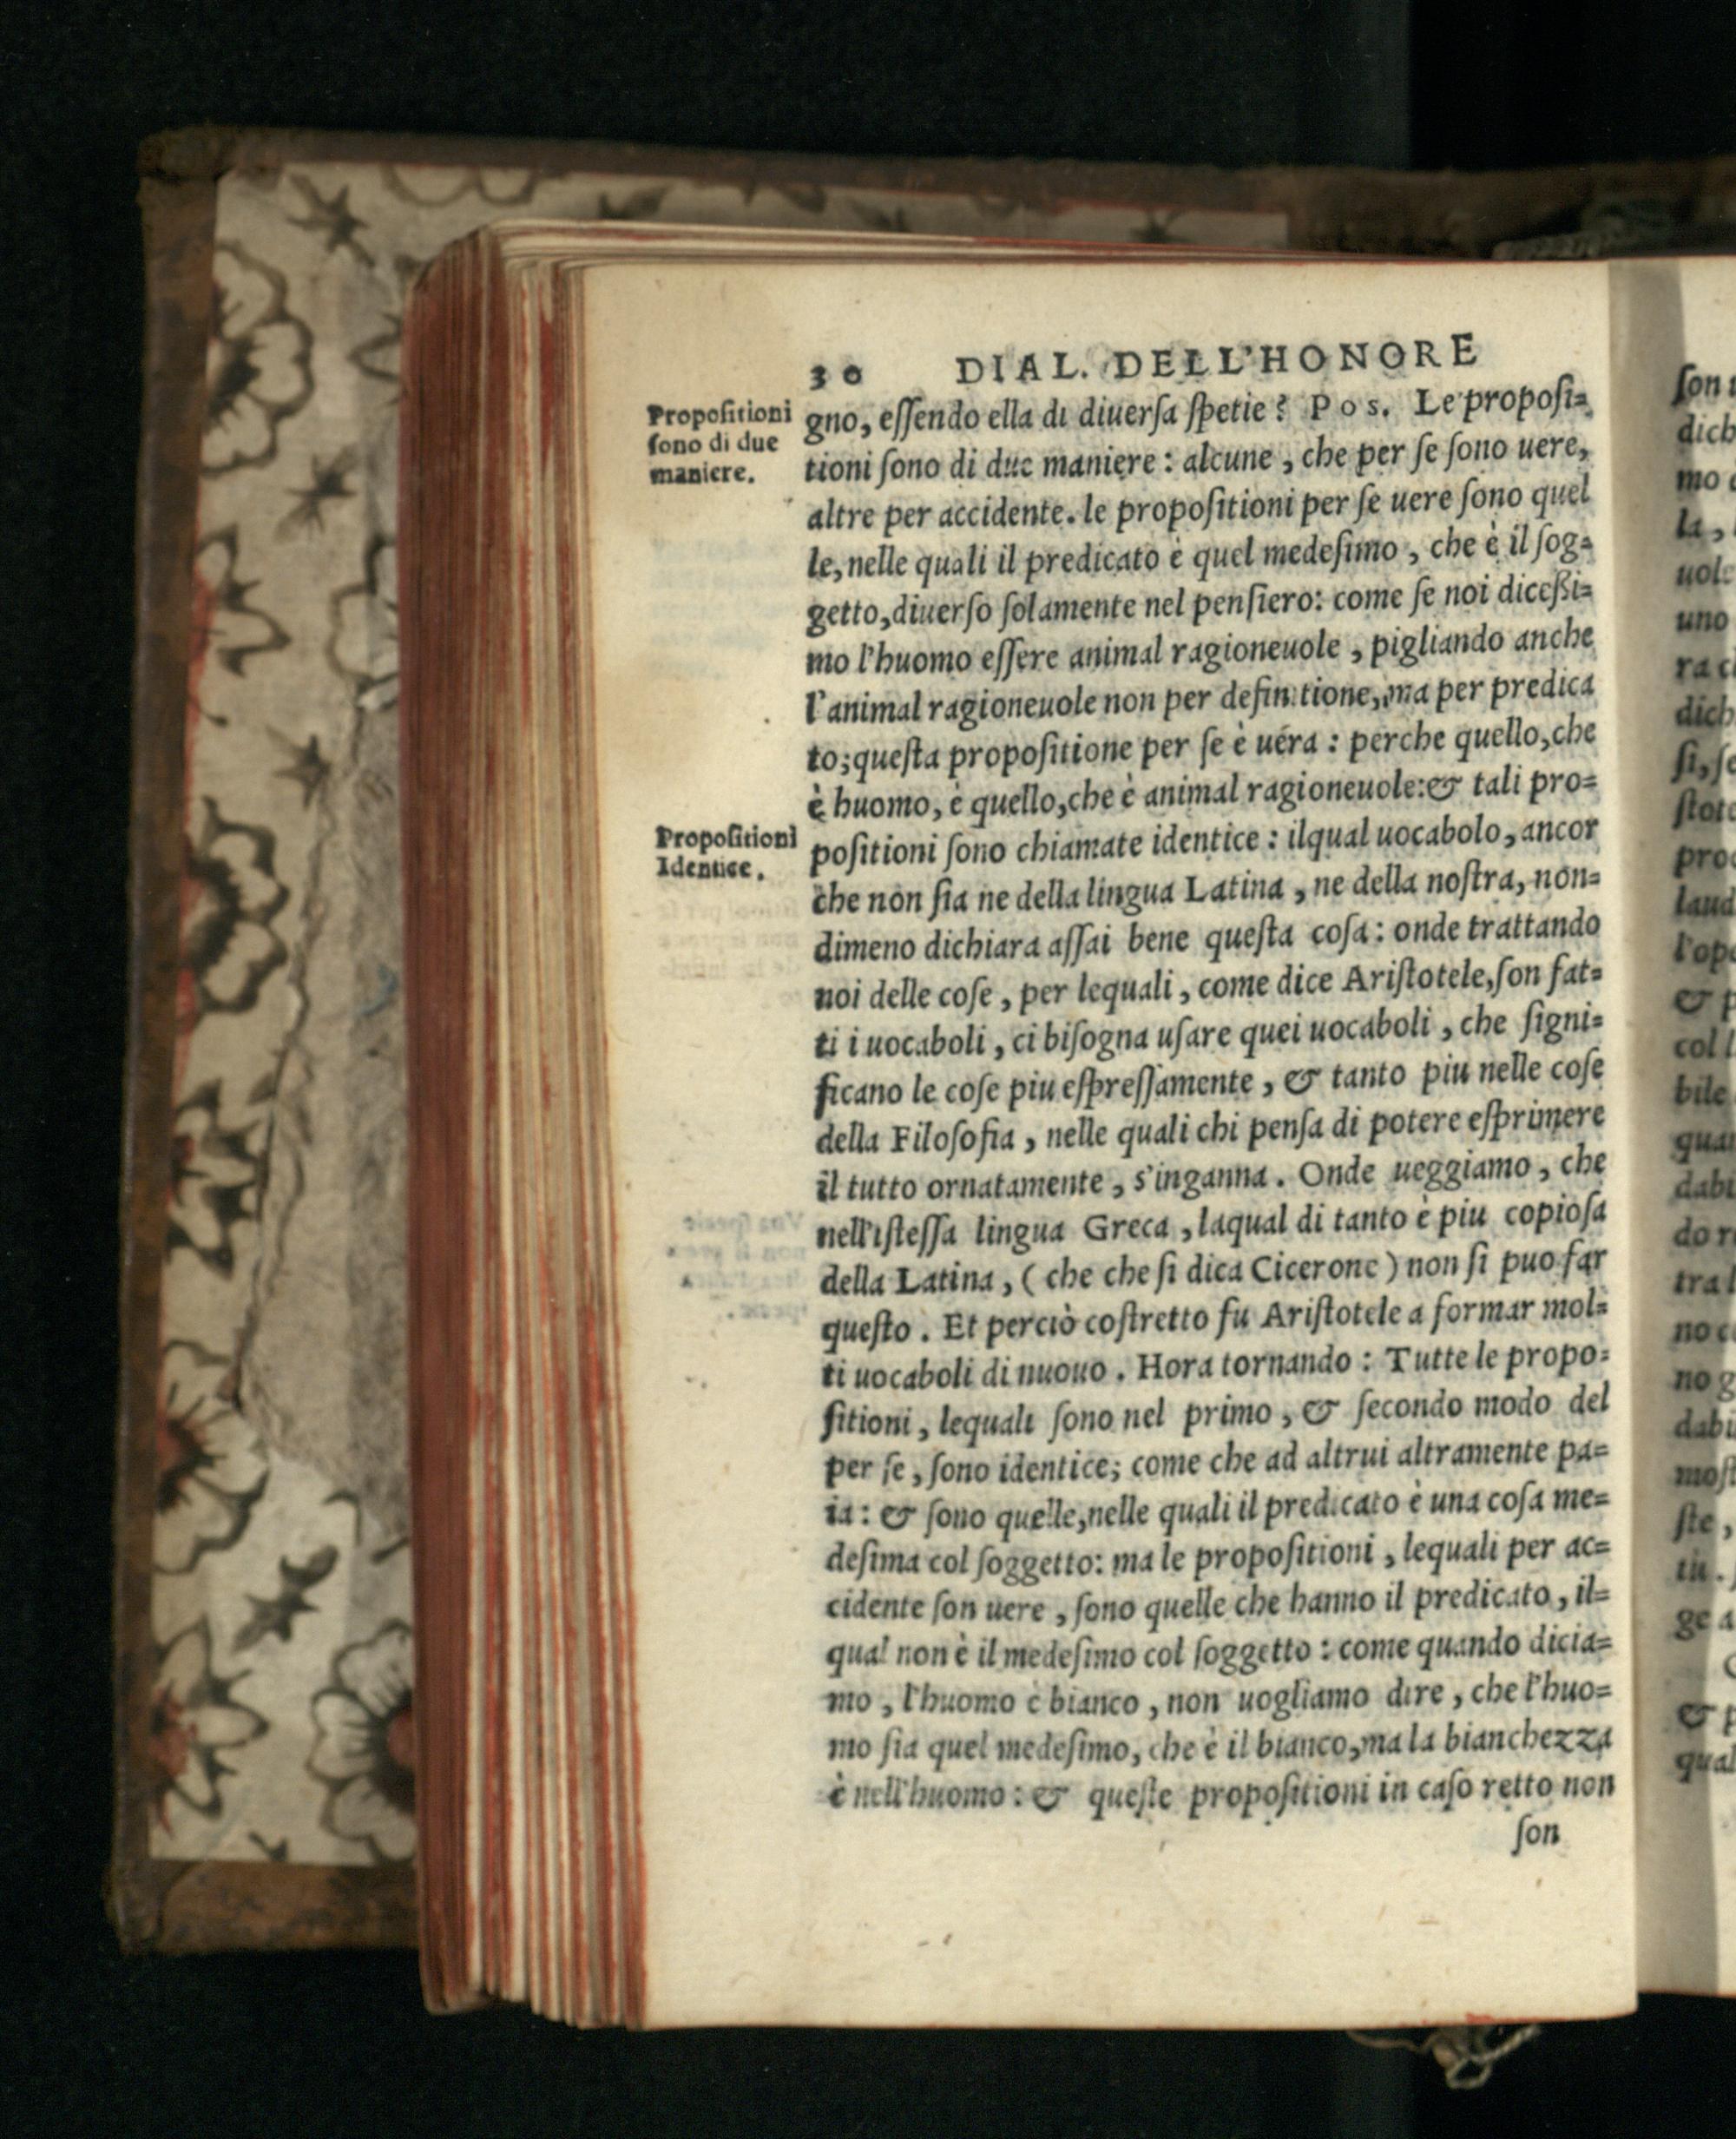 30 DIAL. DELL'HONORE
Propoſitioni
ſono di due
maniere.
gno, eſſendo ella di diuerſa ſpetie? Pos. Le propoſi=
tioni ſono di due maniere: alcune, che per ſe ſono uere,
altre per accidente. le propoſitioni per ſe uere ſono quel
le, nelle quali il predicato è quel medeſimo, che è il ſog=
getto, diuerſo ſolamente nel penſiero: come ſe noi diceßi=
mo l'huomo eſſere animal ragioneuole, pigliando anche
l'animal ragioneuole non per definitione, ma per predica
to; queſta propoſitione per ſe è uéra: perche quello, che
è huomo, è quello, che è animal ragioneuole: & tali pro=
Propoſitioni
Identice.
poſitioni ſono chiamate identice: ilqual uocabolo, ancor
che non ſia ne della lingua Latina, ne della noſtra, non=
dimeno dichiara aſſai bene queſta coſa: onde trattando
noi delle coſe, per lequali, come dice Ariſtotele, ſon fat=
ti i uocaboli, ci biſogna uſare quei uocaboli, che ſigni=
ficano le coſe piu eſpreſſamente, & tanto piu nelle coſe
della Filoſofia, nelle quali chi penſa di potere eſprimere
il tutto ornatamente, s'inganna. Onde ueggiamo, che
nell'iſteſſa lingua Greca, laqual di tanto è piu copioſa
della Latina, (che che ſi dica Cicerone) non ſi puo far
queſto. Et perciò coſtretto fu Ariſtotele a formar mol=
ti uocaboli di nuouo. Hora tornando: Tutte le propo=
ſitioni, lequali ſono nel primo, & ſecondo modo del
per ſe, ſono identice; come che ad altrui altramente pa=
ia: & ſono quelle, nelle quali il predicato è una coſa me=
deſima col ſoggetto: ma le propoſitioni, lequali per ac=
cidente ſon uere, ſono quelle che hanno il predicato, il=
qual non è il medeſimo col ſoggetto: come quando dicia=
mo, l'huomo è bianco, non uogliamo dire, che l'huo=
mo ſia quel medeſimo, che è il bianco, ma la bianchezza
è nell'huomo: & queſte propoſitioni in caſo retto non
ſon